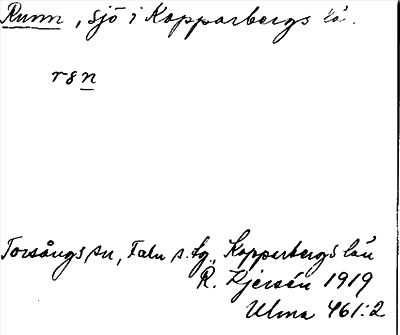 Runn, sjö i Kopparbergs lä.
rsn
Torsångs sn, Falu s. tg., Kopparbergs län
R. 1919
Ulma 461:2